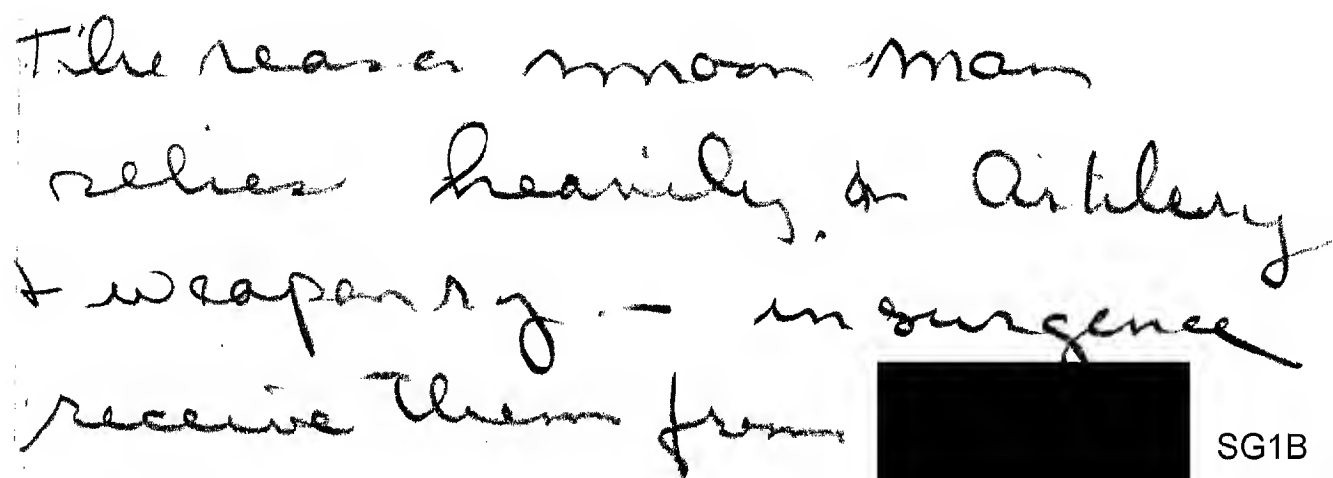 The reason moon man
relies heavily on Artilery
+ weaponry. - insurgence
receive them from
SG1B